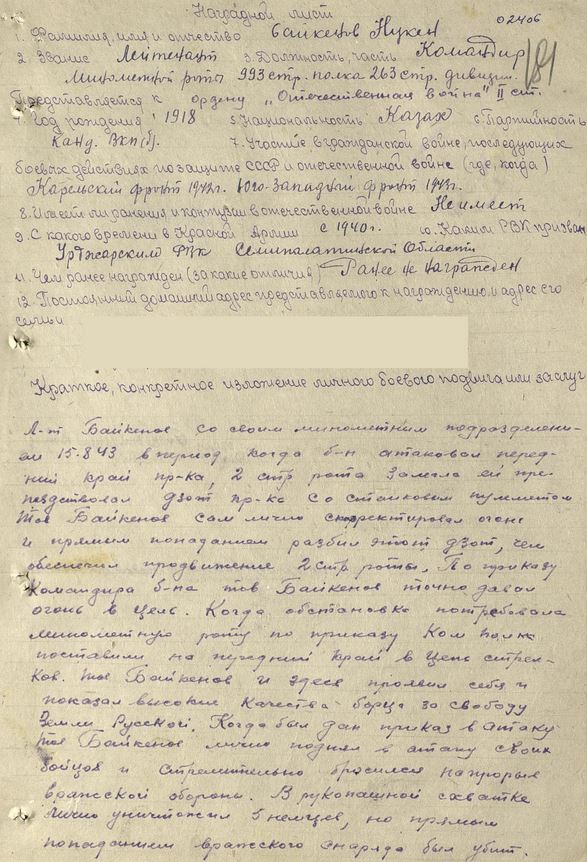 Наградной лист
02406
1. Фамилия, имя и отчество Байкенов Нукен
2. Звание Лейтенант 3. Должность, часть Командир
Минометной роты 993 стр. полка 263 стр. дивизии.
Представляется к ордену „Отечественная война" II ст.
4. Год рождения 1918 5. Национальность Казах 6. Партийность
канд. ВКП(б). 7. Участие в гражданской войне, последующих
боевых действиях по защите СССР и отечественной войне (где, когда)
Карельский фронт 1942г. Юго-Западный фронт 1943г.
8. Имеет ли ранения и контузии в отечественной войне Не имеет
9. С какого времени в Красной Армии с 1940г. 10. Каким РВК призван
Урджарским РВК Семипалатинской Области
11. Чем ранее награжден (за какие отличия) Ранее не награжден
12. Постоянный домашний адрес представляемого к награждению и адрес его
семьи
Краткое, конкретное изложение личного боевого подвига или заслуг
Л-т Байкенов со своим минометным подразделени-
ем 15.8.43 в период, когда б-н атаковал перед-
ний край пр-ка, 2 стр рота залегла ей пре-
пядствовал дзот пр-ка со станковым пулеметом
тов Байкенов сам лично скоректировал огонь
и прямым попаданием разбил этот дзот, чем
обеспечил продвижение 2 стр роты. По приказу
командира б-на тов Байкенов точно давал
огонь в цель. Когда обстановка потребовала
минометную роту по приказу Ком полка
поставили на передний край в цепь стрел-
ков. тов Байкенов и здесь проявил себя и
показал высокие качества борца за свободу
Земли Русской. Когда был дан приказ в атаку
тов Байкенов лично поднял в атаку своих
бойцов и стремительно бросился на прорыв
вражской обороны. В рукопашной схватке
лично уничтожил 5 немцев, но прямым
попаданием вражского снаряда был убит.